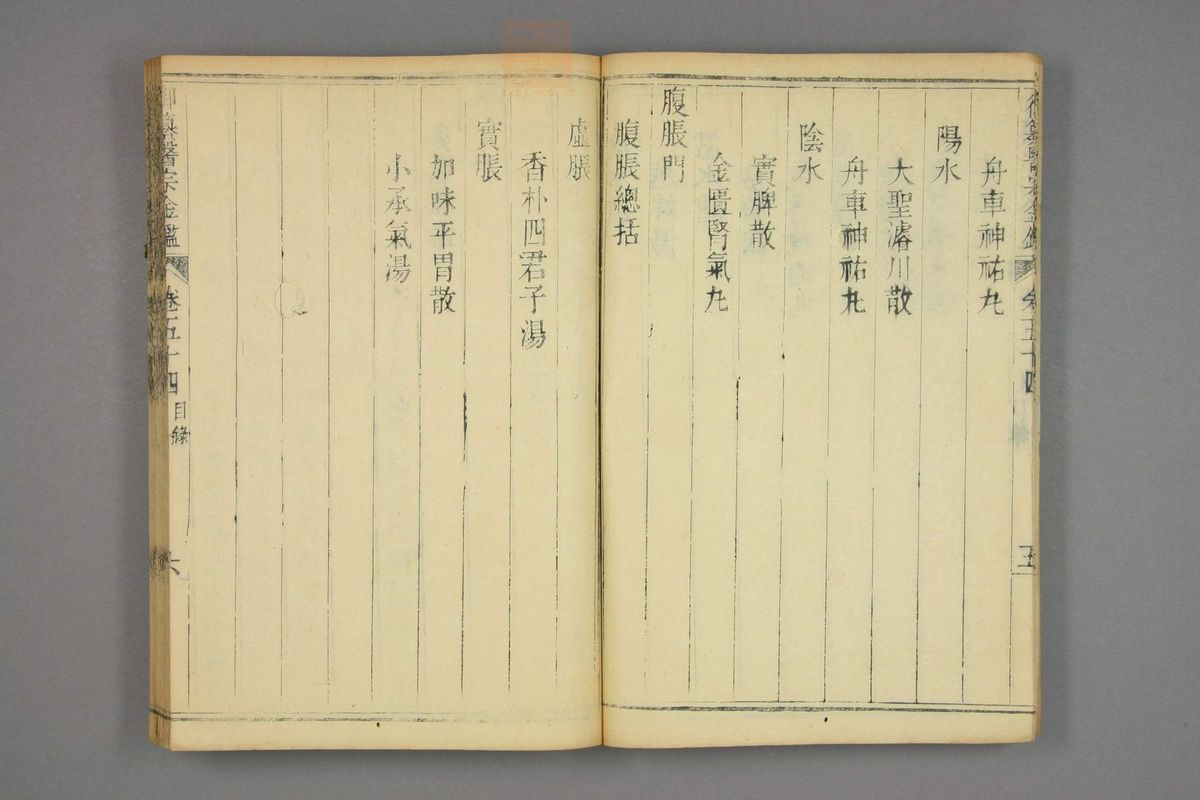 舟車神祐丸
陽水
大聖濬川散
舟車神祐丸
陰水
實脾散
金匱腎氣丸
腹脹門
腹脹總括
虛脹
香朴四君子湯
實脹
加味平胃散
小承氣湯
御纂醫宗金鑑 卷五十四 目錄 六